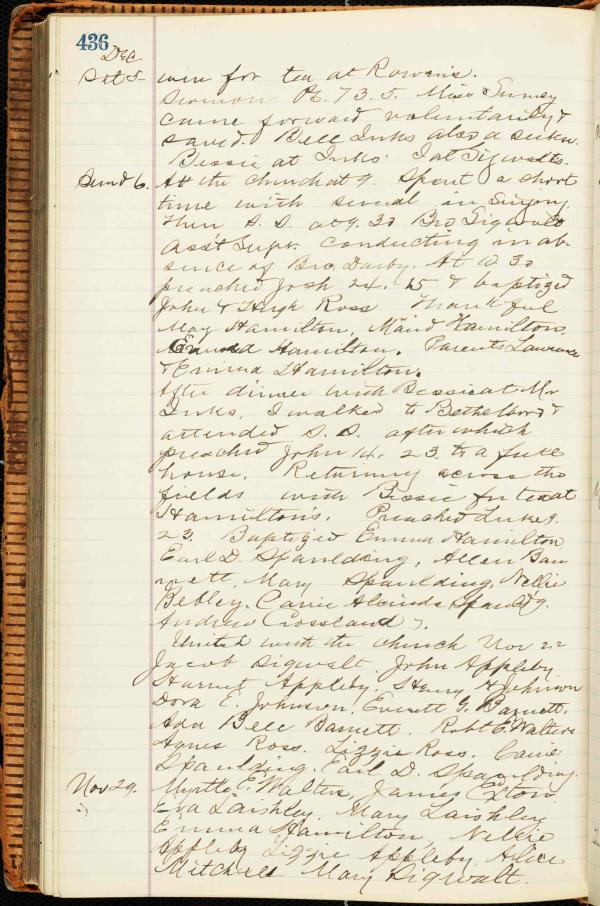 436
Dec
Sat 5 were for tea at Rowens.
Sermon Ps. 73. 5. Miss Sumey
came forward voluntarily &
saved. Bell Inks also a seeker.
Bessie at Inks. I at Sigwalts.
Sund 6. At the church at 9. Spent a short
time with several in Singing.
Then S. S. at 9.30 Bro Sigwalt
Asst Supt. Conducting in ab-
sence of Bro. Darby. At 10 30
preached Josh 24. 15 & baptized
John & Hugh Ross Thankful
May Hamilton, Maud Hamilton,
Hamilton. Parents Lawrence
& Emma Hamilton.
After dinner with Bessie at Mr
Inks, I walked to &
attended S. S. after which
preached John 14. 23 to a full
house. Returning across the
fields with Bessie for tea at
Hamilton's. Preached Luke 9.
23. Baptized Emma Hamilton
Earl D. Spaulding, Allen Bar
nett, Mary Spaulding, Nellie
Bebley. Carrie Spauldg.
Andrew Crossland 7.
United with the church Nov 22
Jacob Sigwalt. John Appleby
Harriet Appleby. Henry H Johnson
Dora C. Johnson. Everett G. Barnett.
Ada Bell Barnett. Robt E. Walters
Agnes Ross. Lizzie Ross. Carrie
Spaulding. Earl D. Spaulding.
Nov 29. Myrtle E. Walters, James Ed Cton
Eva Laishley. Mary Laishley
Emma Hamilton, Nellie
Appleby Lizzie Appleby. Alice
Mitchell Mary Sigwalt.